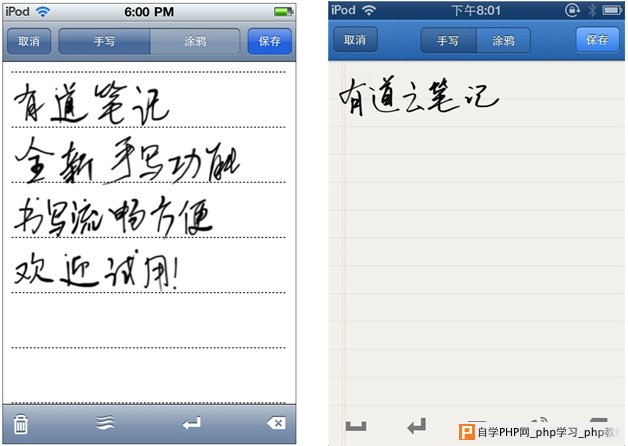 iPod 6:00 PM
取消 手写 涂鸦 保存
有道笔记
全新手写功能
书写流畅方便
欢迎试用!
iPod 下午8:01
取消 手写 涂鸦 保存
有道云笔记
自学PHP网_php学习_php教程